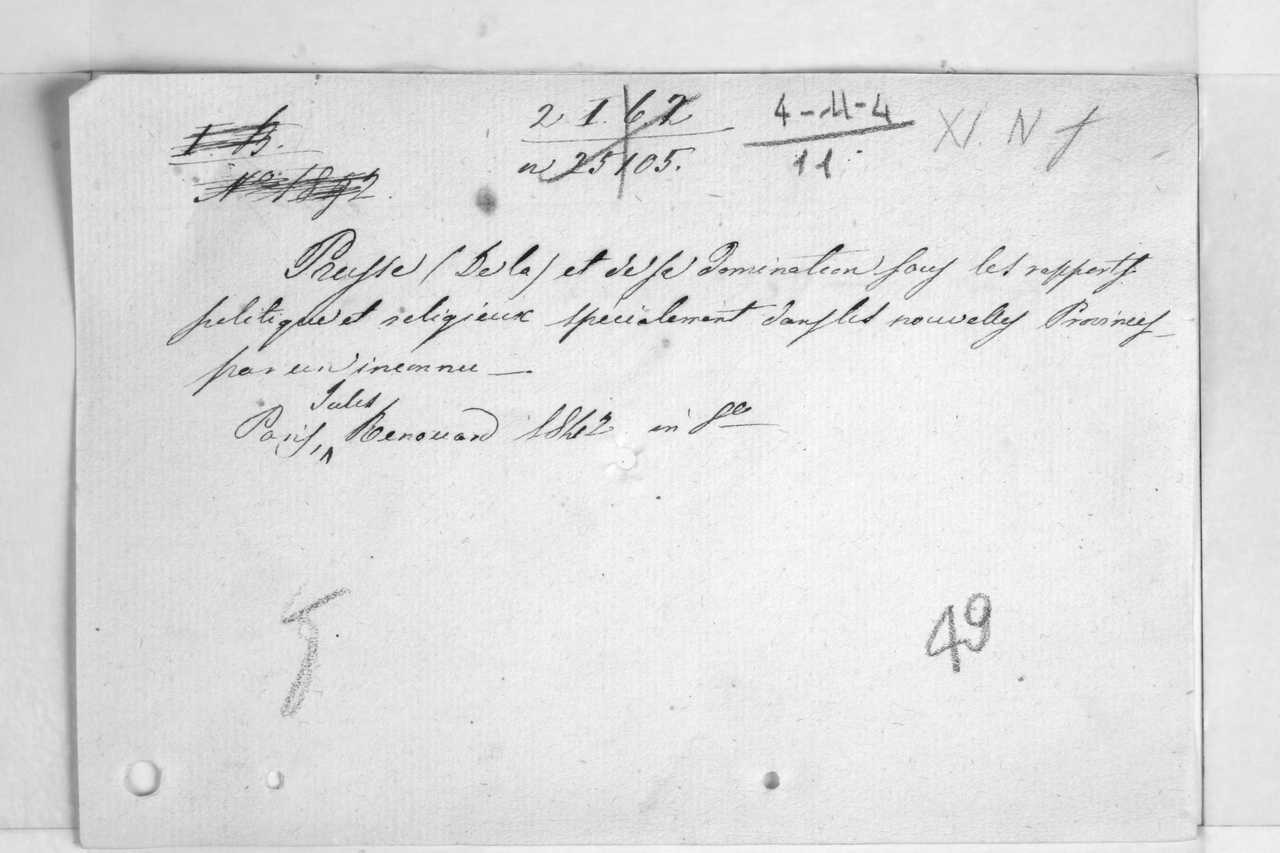 I. B.
Nº 1892.
2 1. 6. 2
n 25105.
4-11-4
11
XI. N f
Prusse (De la) et de sa domination sous les rapports
politique et religieux spécialement dans les nouvelles Provinces
par un inconnu —
Jules
Paris, Renouard 1842 in 8º
5
49